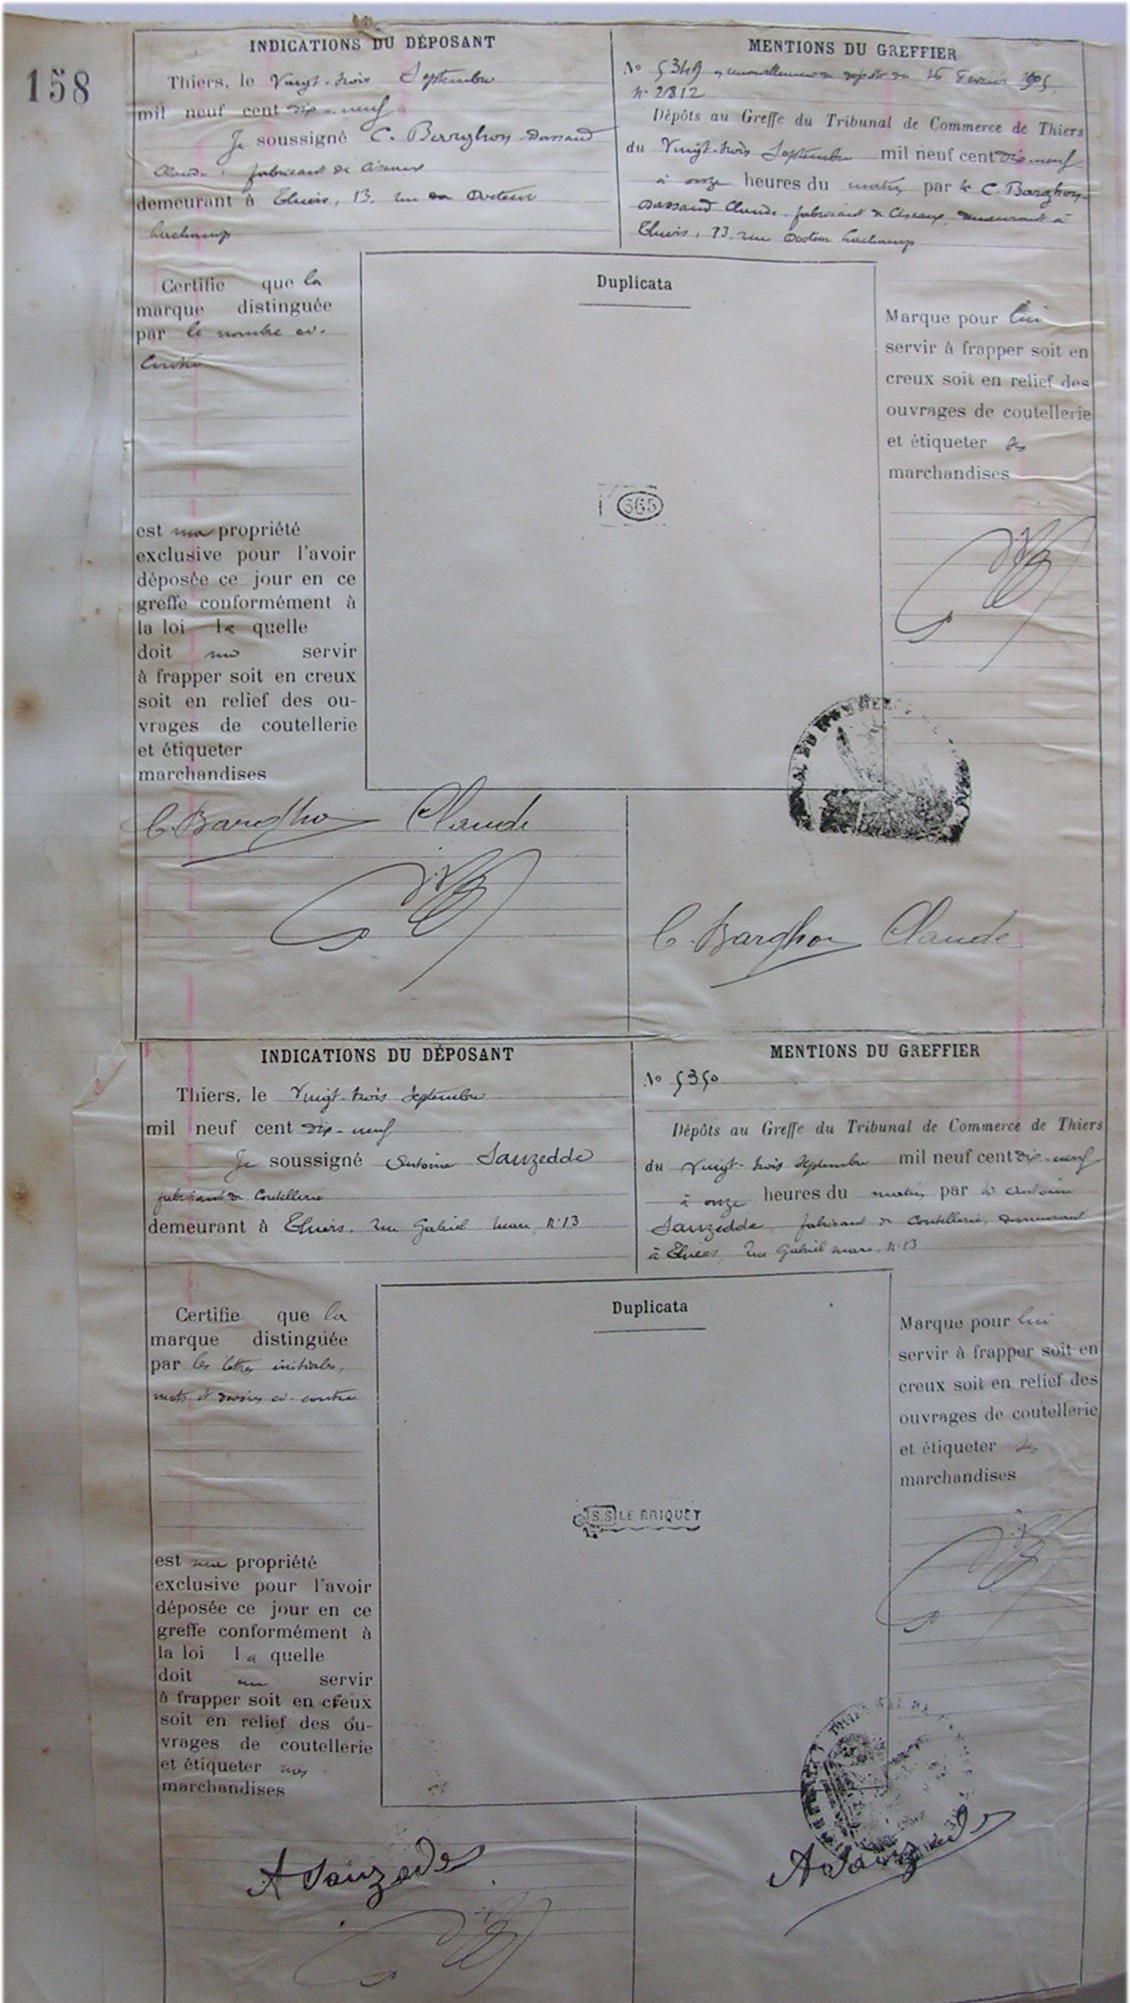 158
INDICATIONS DU DÉPOSANT
Thiers, le Vingt-trois Septembre
mil neuf cent dix-neuf
Je soussigné C. Barghon Dassaud
Claude, fabricant de ciseaux
demeurant à Thiers, 13, rue du Docteur
Lachamp
Certifie que la
marque distinguée
par le nombre ci-
contre
est ma propriété
exclusive pour l'avoir
déposée ce jour en ce
greffe conformément à
la loi la quelle
doit me servir
à frapper soit en creux
soit en relief des ou-
vrages de coutellerie
et étiqueter
marchandises
C. Barghon Claude
MENTIONS DU GREFFIER
No 5349 renouvellement du dépôt du 16 Février 1905
N° 2812
Dépôts au Greffe du Tribunal de Commerce de Thiers
du Vingt-trois Septembre mil neuf cent dix-neuf
à onze heures du matin par le C. Barghon-
Dassaud Claude fabricant de Ciseaux, demeurant à
Thiers, 13, rue Docteur Lachamp
Duplicata
365
Marque pour lui
servir à frapper soit en
creux soit en relief des
ouvrages de coutellerie
et étiqueter ses
marchandises
C. Barghon Claude
INDICATIONS DU DÉPOSANT
Thiers, le Vingt-trois Septembre
mil neuf cent dix-neuf
Je soussigné Antoine Sauzedde
fabricant de Coutellerie
demeurant à Thiers, Rue Gabriel Marc, N° 13
Certifie que la
marque distinguée
par les lettres initiales,
mots et dessins ci-contre
est ma propriété
exclusive pour l'avoir
déposée ce jour en ce
greffe conformément à
la loi la quelle
doit me servir
à frapper soit en creux
soit en relief des ou-
vrages de coutellerie
et étiqueter mes
marchandises
A Sauzedde
MENTIONS DU GREFFIER
No 5350
Dépôts au Greffe du Tribunal de Commerce de Thiers
du Vingt-trois Septembre mil neuf cent dix-neuf
à onze heures du matin par le Antoine
Sauzedde, fabricant de Coutellerie, demeurant
à Thiers, Rue Gabriel Marc, N° 13
Duplicata
S.S LE BRIQUET
Marque pour lui
servir à frapper soit en
creux soit en relief des
ouvrages de coutellerie
et étiqueter ses
marchandises
A Sauzedde